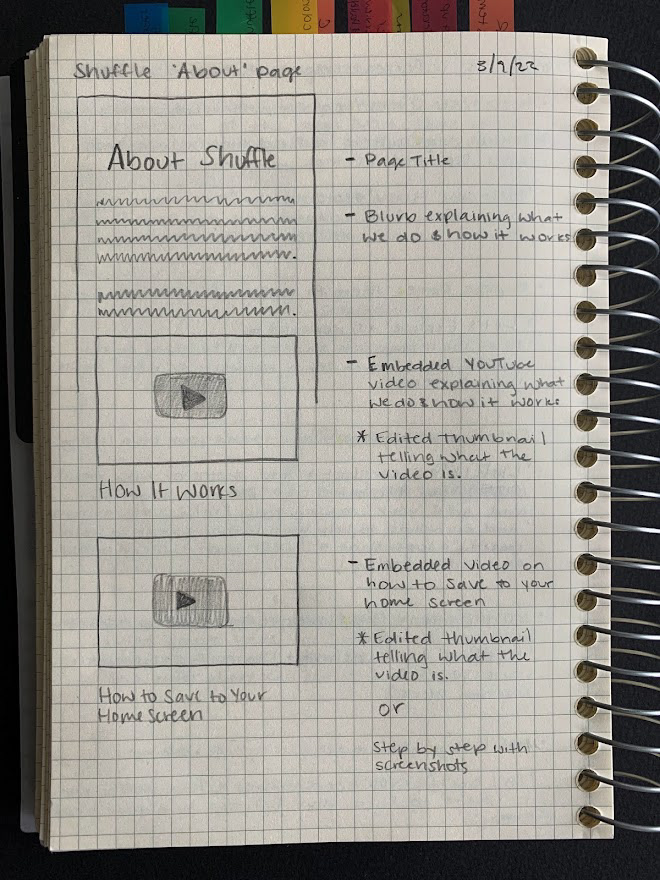 Shuffle 'About' page
3/9/22
About Shuffle
- Page Title
- Blurb explaining what
we do & how it works
- Embedded YouTube
video explaining what
we do & how it works
* Edited thumbnail
telling what the
video is.
How It Works
- Embedded video on
how to save to your
home screen
* Edited thumbnail
telling what the
video is.
How to Save to Your
Home Screen
or
Step by step with
screenshots